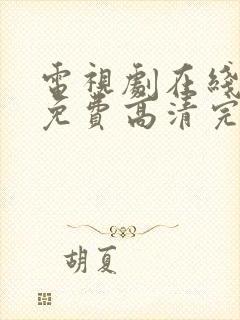 電視劇在綫
免費高清完
胡夏